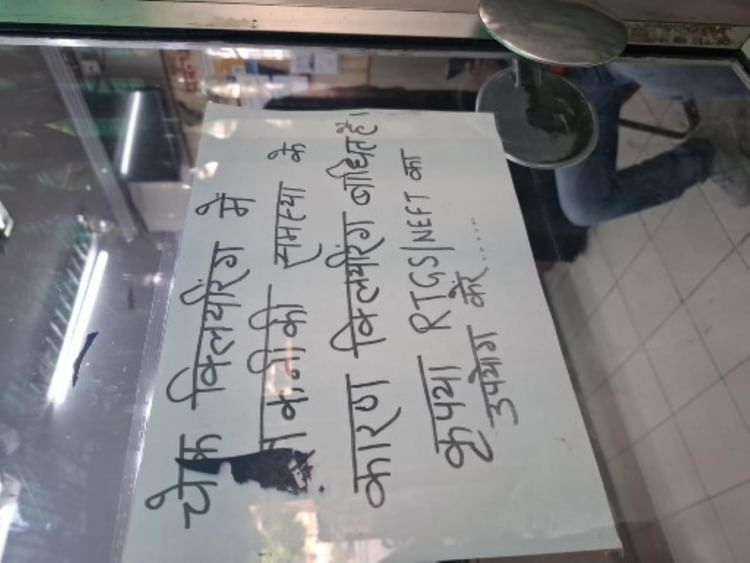 चेक क्लियरिंग में
तकनीकी समस्या के
कारण क्लियरिंग बाधित है।
कृपया RTGS/NEFT का
उपयोग करे......